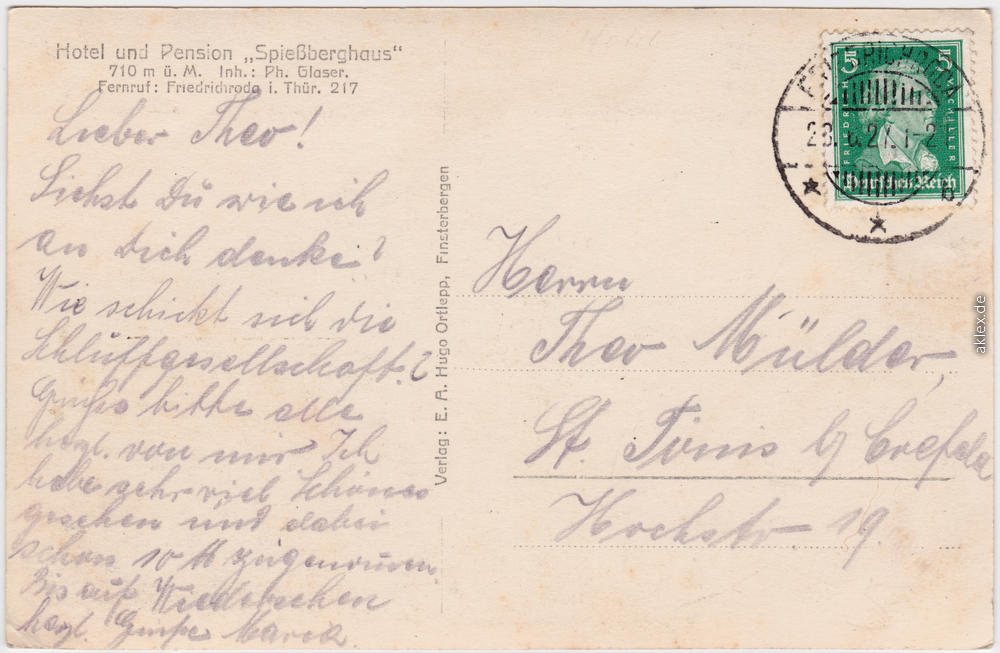 Hotel und Pension „Spießberghaus"
710 m ü. M. Inh.: Ph. Glaser.
Fernruf: Friedrichroda i. Thür. 217
Lieber Theo!
Siehst Du wie ich
an Dich denke?
Wie schickt sich die
Schlüffgesellschaft?
Grüße bitte alle
herzl. von mir Ich
habe sehr viel Schönes
gesehen und dabei
schon 10 ℔ zugenommen.
Bis auf Wiedersehen
herzl. Grüße Maria
Verlag: E. A. Hugo Ortlepp, Finsterbergen
FRIEDRICHRODA
28.6.27. 1-2
5 5
FRIEDRICH V. SCHILLER
Deutsches Reich
Herrn
Theo Mülder,
St. Tönis b/ Crefeld
Hochstr. 19.
aklex.de